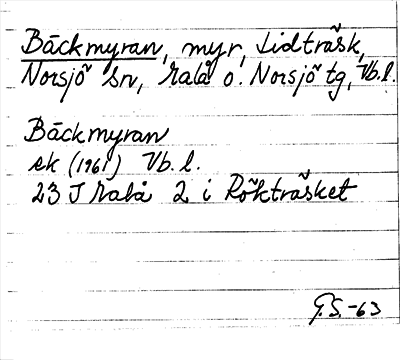 Bäckmyran, myr, Lidträsk,
Norsjö sn, Malå o. Norsjö tg, Vb.l.
Bäckmyran
ek (1961) Vb. l.
23 J Malå 2 i Rökträsket
G.S.-63